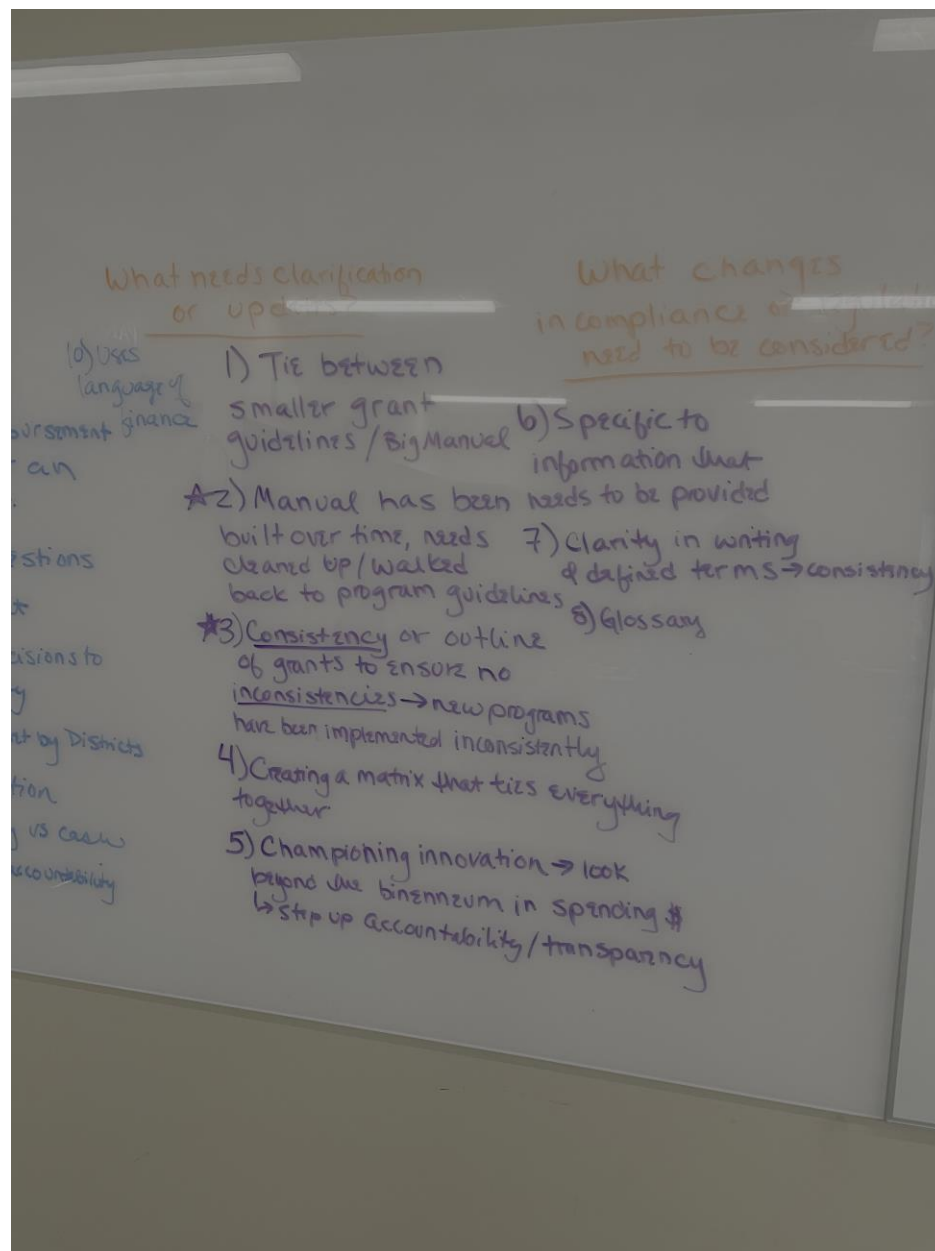 What needs clarification
or update?
What changes
in compliance or
need to be considered?
10) Uses
language of
finance
bursement
an
stions
isions to
y
by Districts
tion
vs cash
accountability
1) Tie between
smaller grant
guidelines / Big Manual
☆2) Manual has been
built over time, needs
cleaned up / walked
back to program guidelines
★3) Consistency or outline
of grants to ensure no
inconsistencies → new programs
have been implemented inconsistently
4) Creating a matrix that ties everything
together
5) Championing innovation → look
beyond the binenneum in spending $
↳ step up accountability / transparncy
6) Specific to
information that
needs to be provided
7) Clarity in writing
& defined terms → consistency
8) Glossary